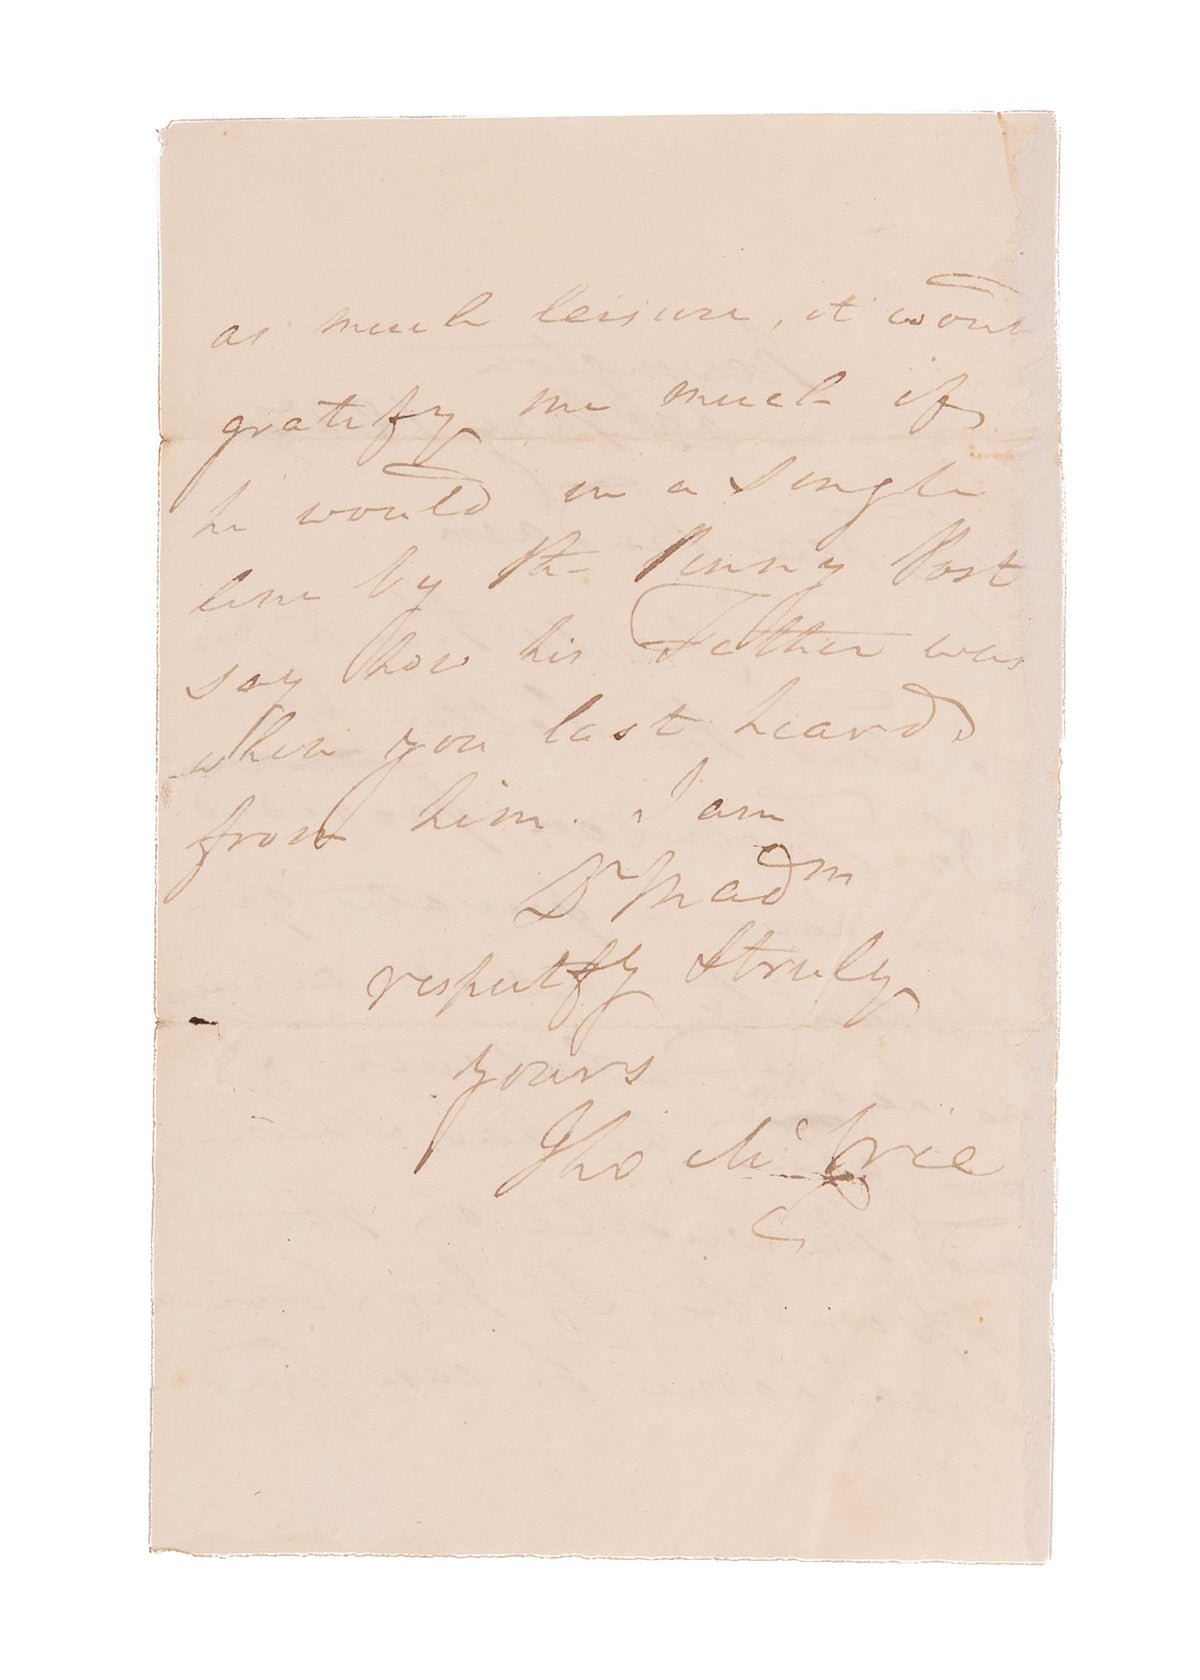 as much leisure, it would
gratify me much if
he would in a single
line by the Penny Post
say how his Father was
when you last heard
from him. I am
Dr Madm
respectfy & truly
yours
Tho McCrie